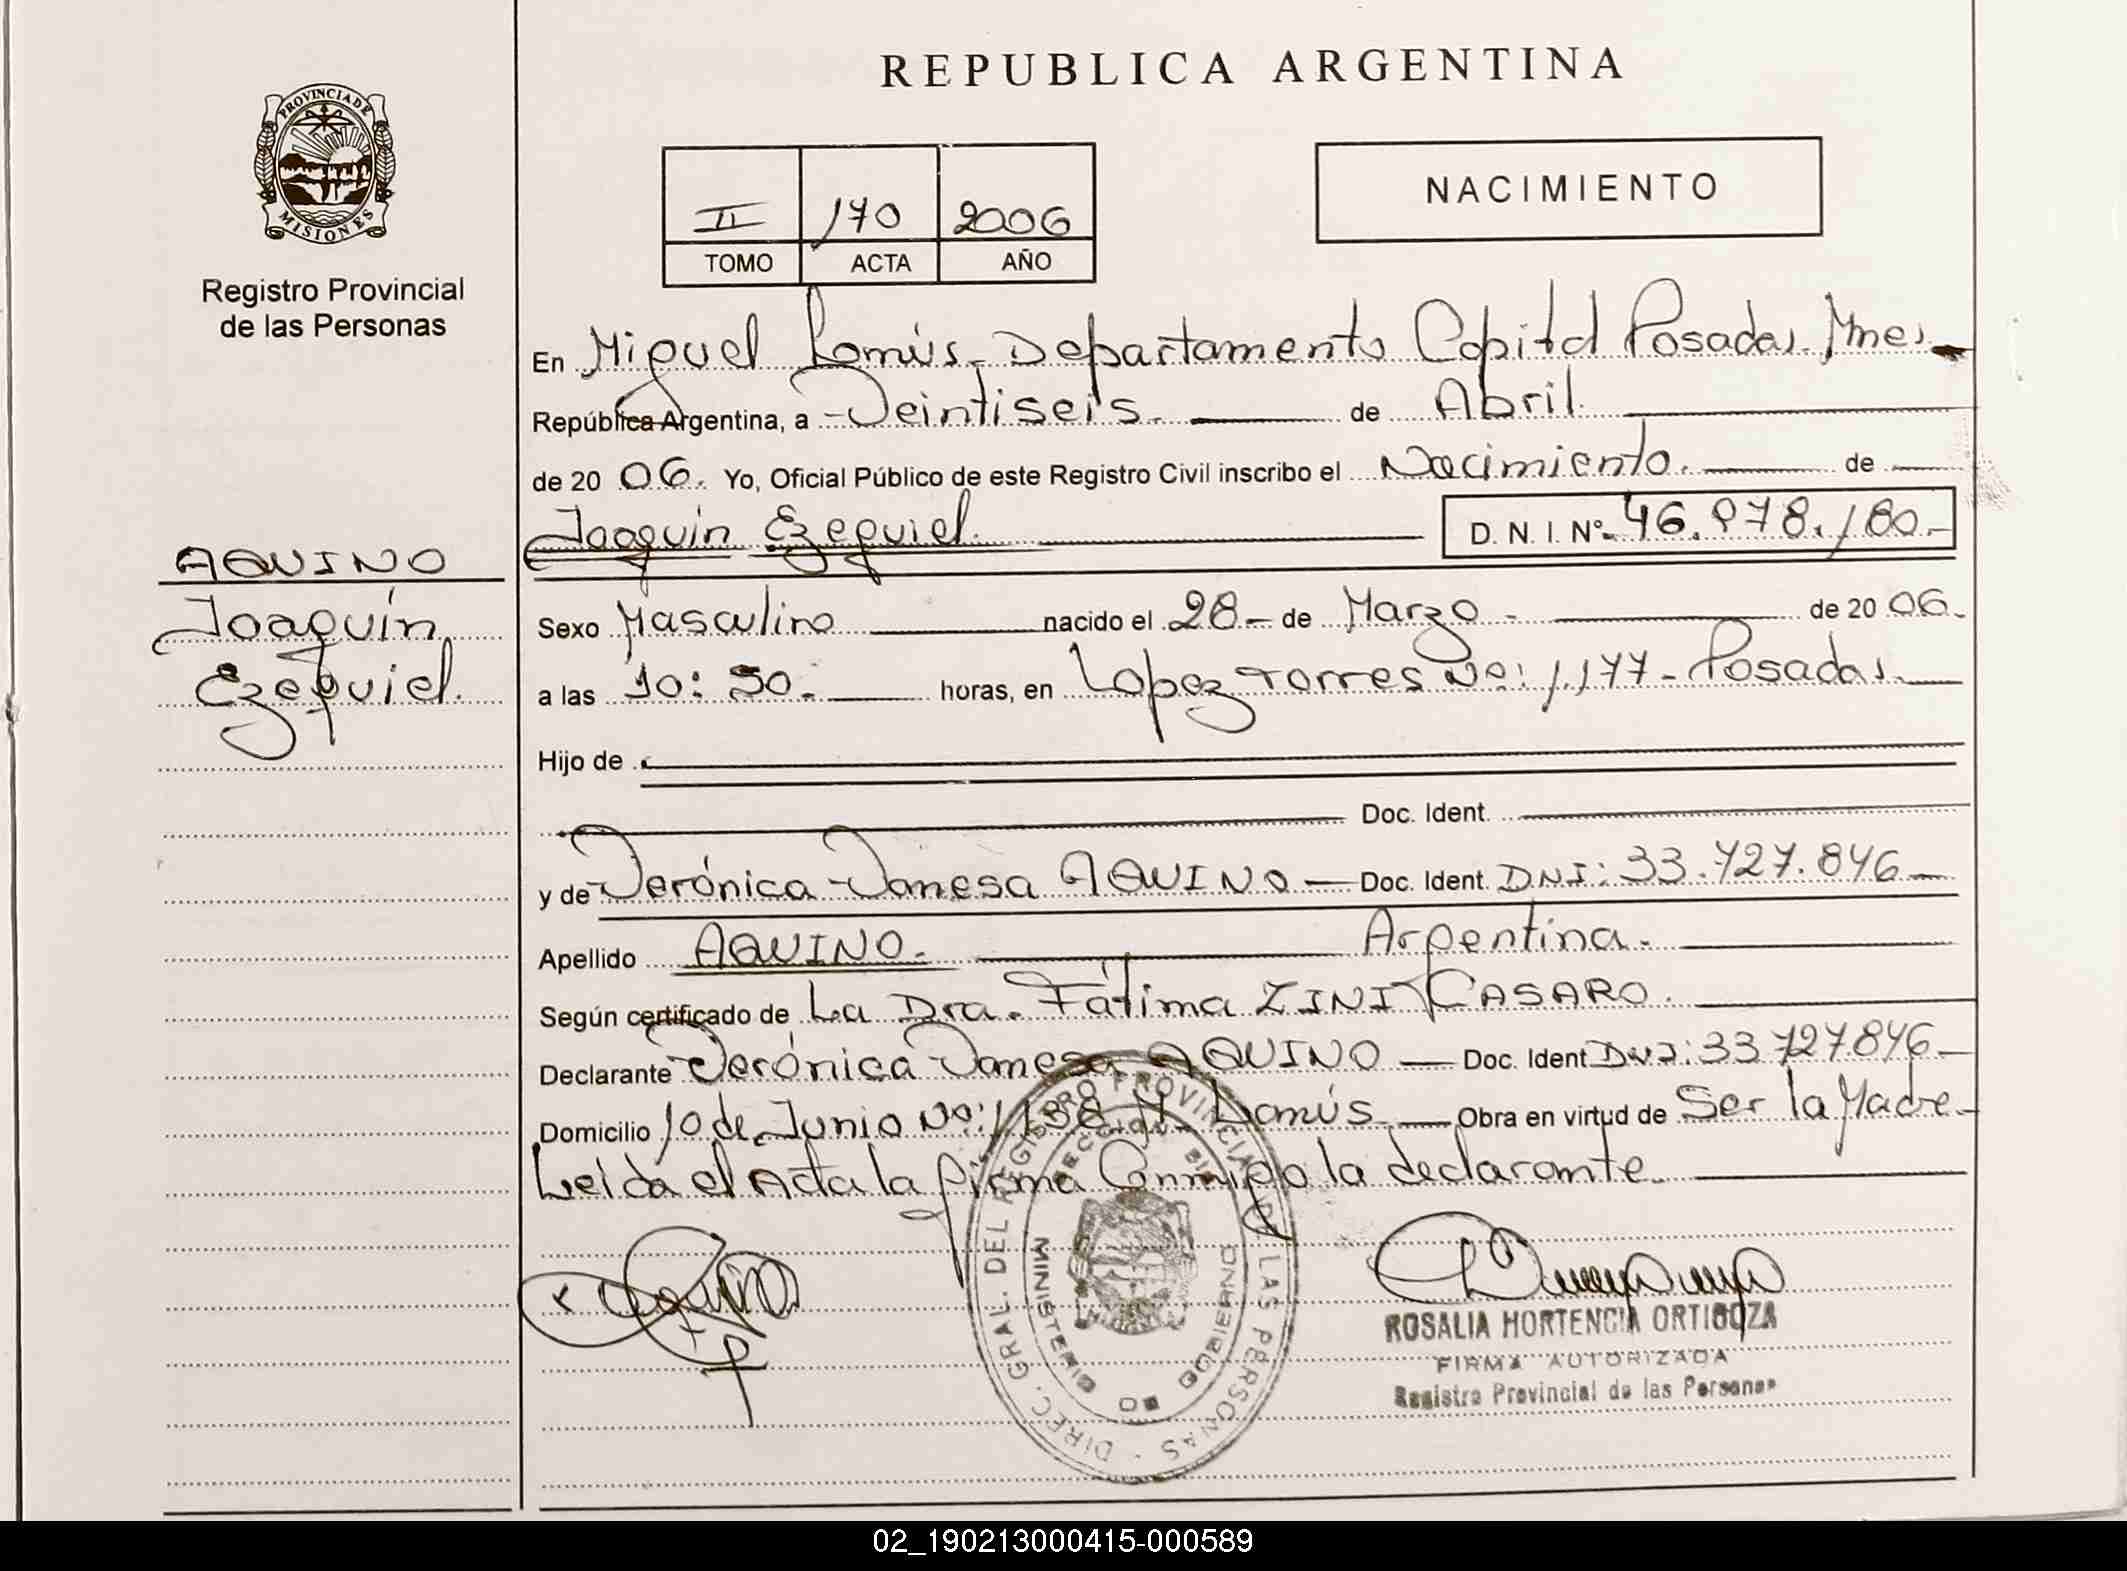 REPUBLICA ARGENTINA
PROVINCIA DE
MISIONES
Registro Provincial
de las Personas
II 170 2006
TOMO ACTA AÑO
NACIMIENTO
En Miguel Lanús - Departamento Capital Posadas. Mnes.
República Argentina, a Veintiseis. de Abril.
de 20 06. Yo, Oficial Público de este Registro Civil inscribo el Nacimiento. de
Joaquín Ezequiel. D. N. I. Nº 46.978.180.-
AQUINO
Joaquín
Ezequiel.
Sexo Masculino nacido el 28 - de Marzo - de 20 06.
a las 10:50. horas, en Lopez Torres No: 1.177 - Posadas.
Hijo de
Doc. Ident.
y de Verónica Vanesa AQUINO - Doc. Ident. DNI: 33.727.846
Apellido AQUINO. Argentina.
Según certificado de La Dra. Fátima ZINI CASARO.
Declarante Verónica Vanesa AQUINO - Doc. Ident DNI: 33727846
Domicilio 10 de Junio No: 1138 M. Lanús. Obra en virtud de Ser la Madre
Leida el Acta la firma Conmigo la declarante.
DIREC. GRAL. DEL REGISTRO PROVINCIAL DE LAS PERSONAS
MINISTERIO DE GOBIERNO
ROSALIA HORTENCIA ORTIGOZA
FIRMA AUTORIZADA
Registro Provincial de las Personas
02_190213000415-000589